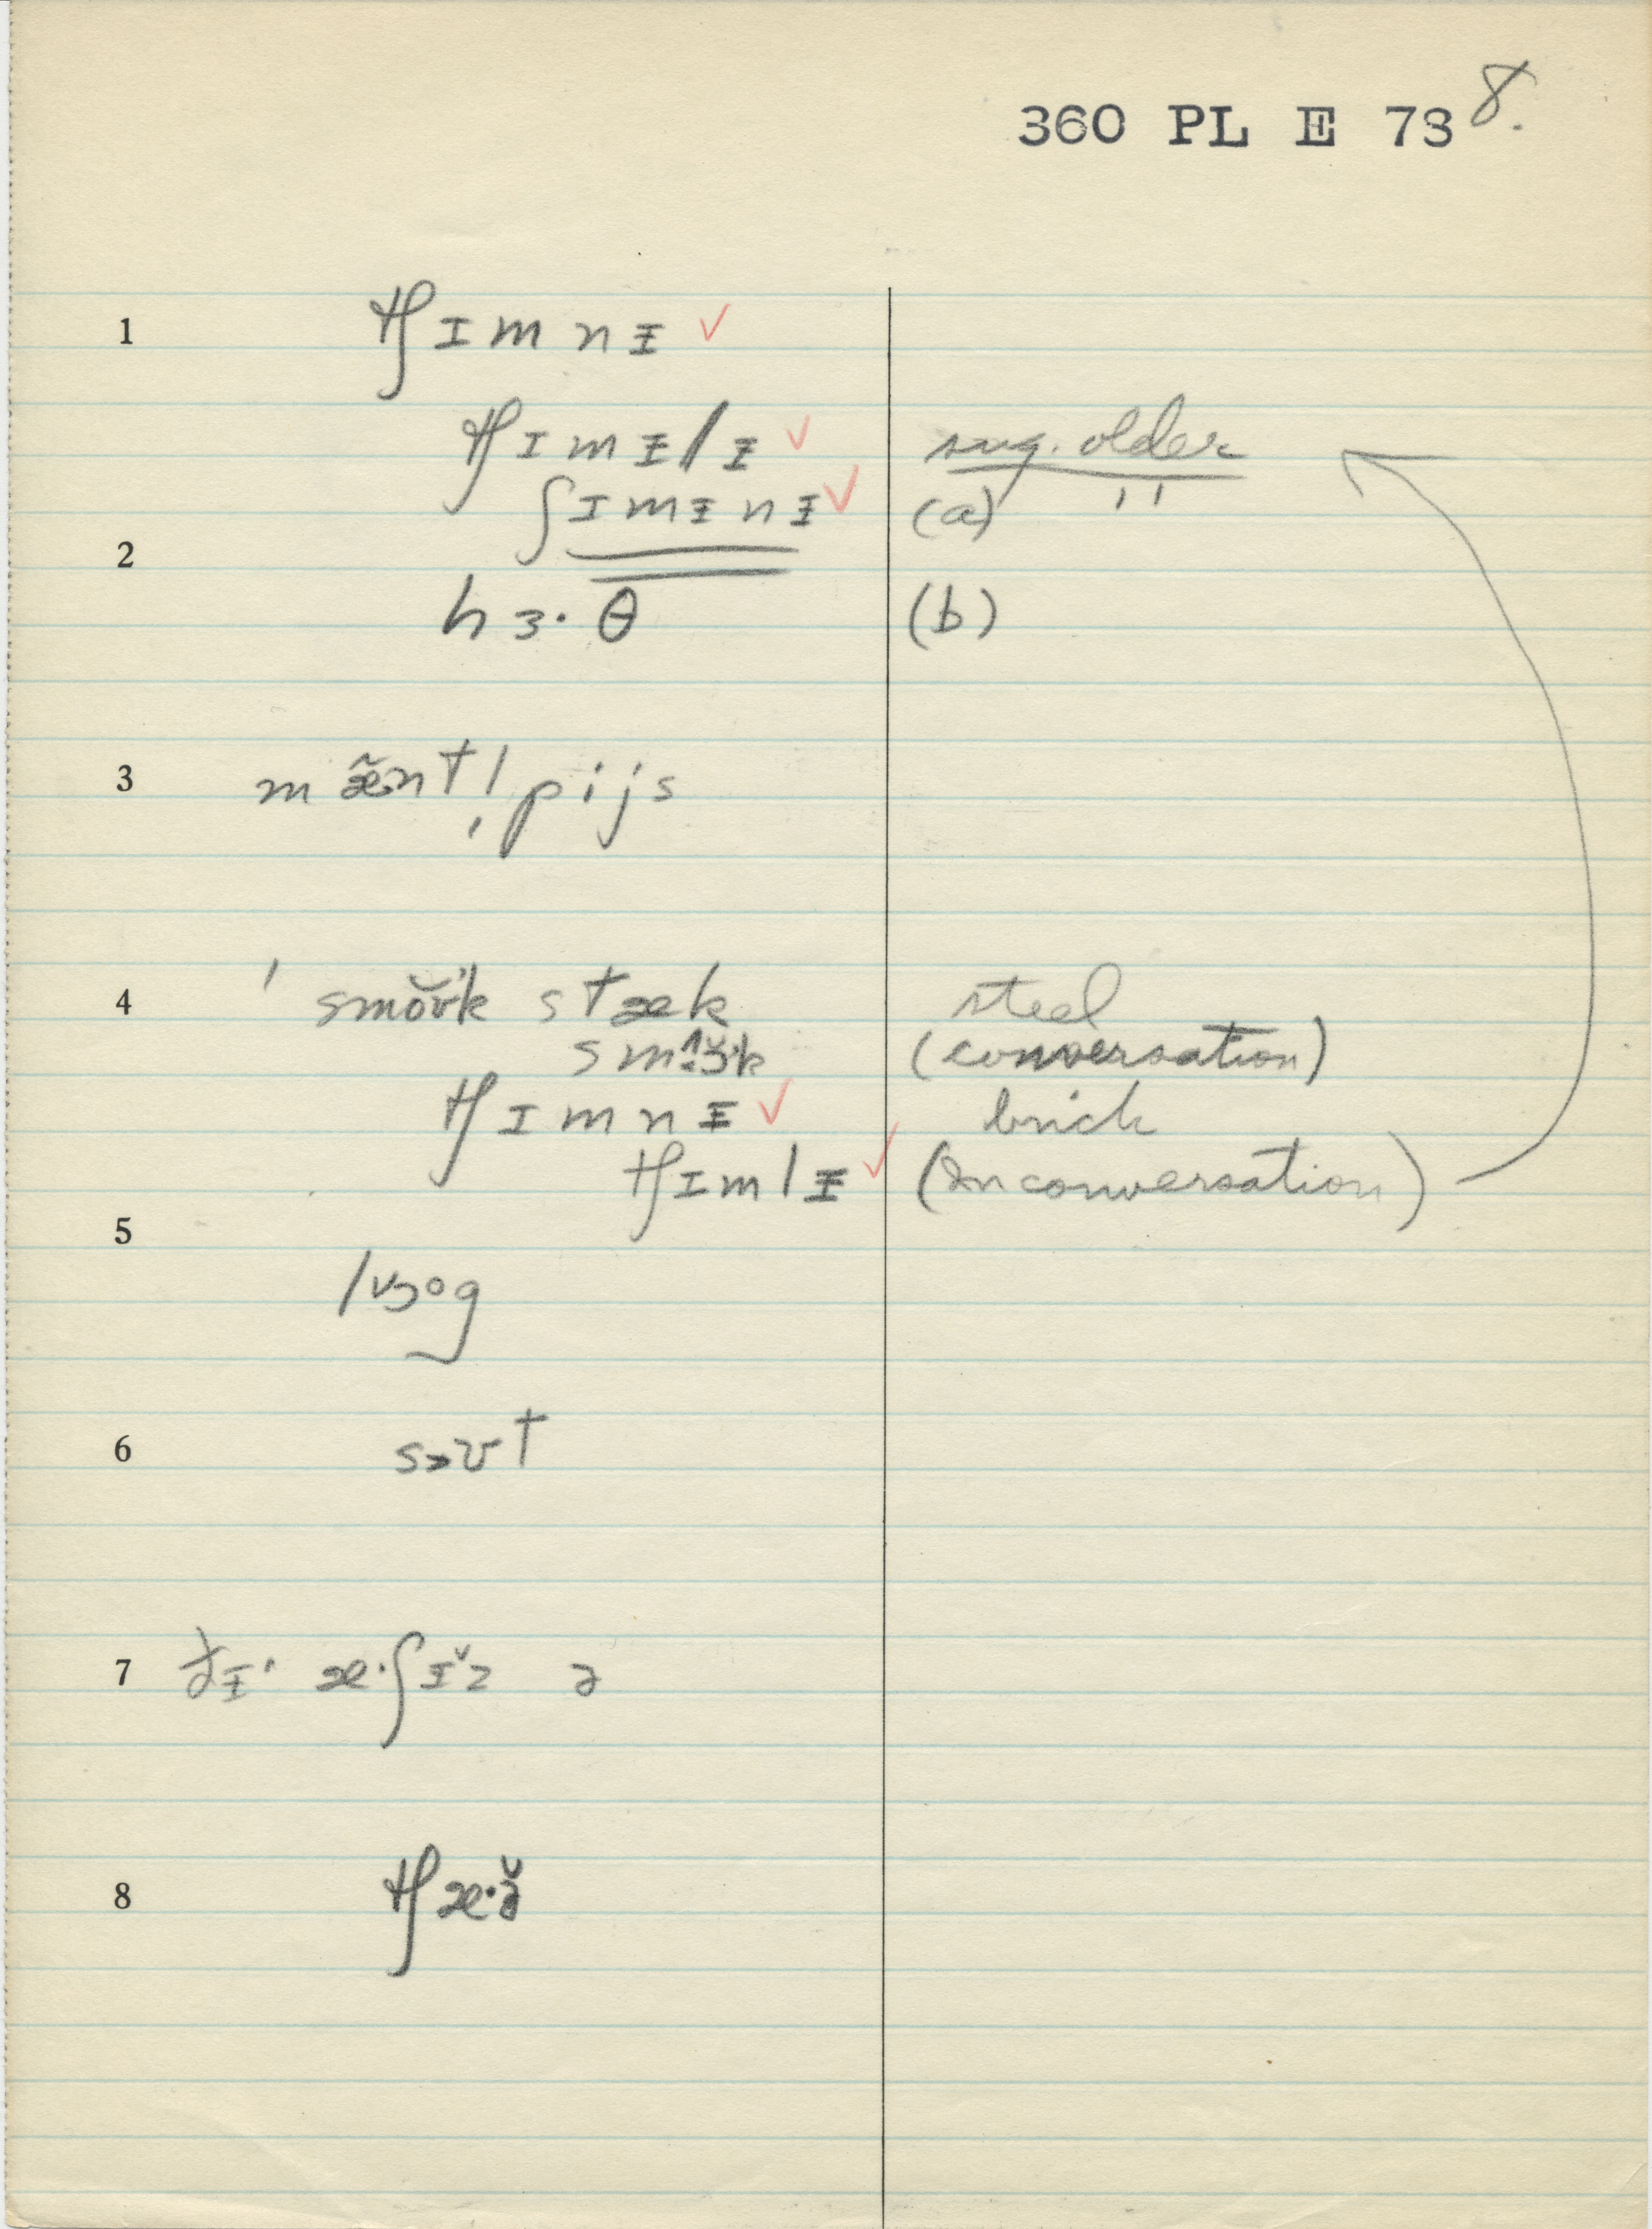 360 PL E 73 8.
1 tʃɪmnɪ̵ ✓
tʃɪmɪ̵lɪ̵ ✓ sug. older
ʃɪmɪ̵nɪ̵ ✓ (a) ''
2
hɜ·θ (b)
3 mæ̃nt!̩pijs
4 'smŏʊk stæk steel
(conversation)
tʃɪmnɪ̵ ✓ brick
tʃɪmlɪ̵ ✓ (in conversation)
5
6
7 æ·ʃɪ̵̆z ə
8 tʃæ·ə̆